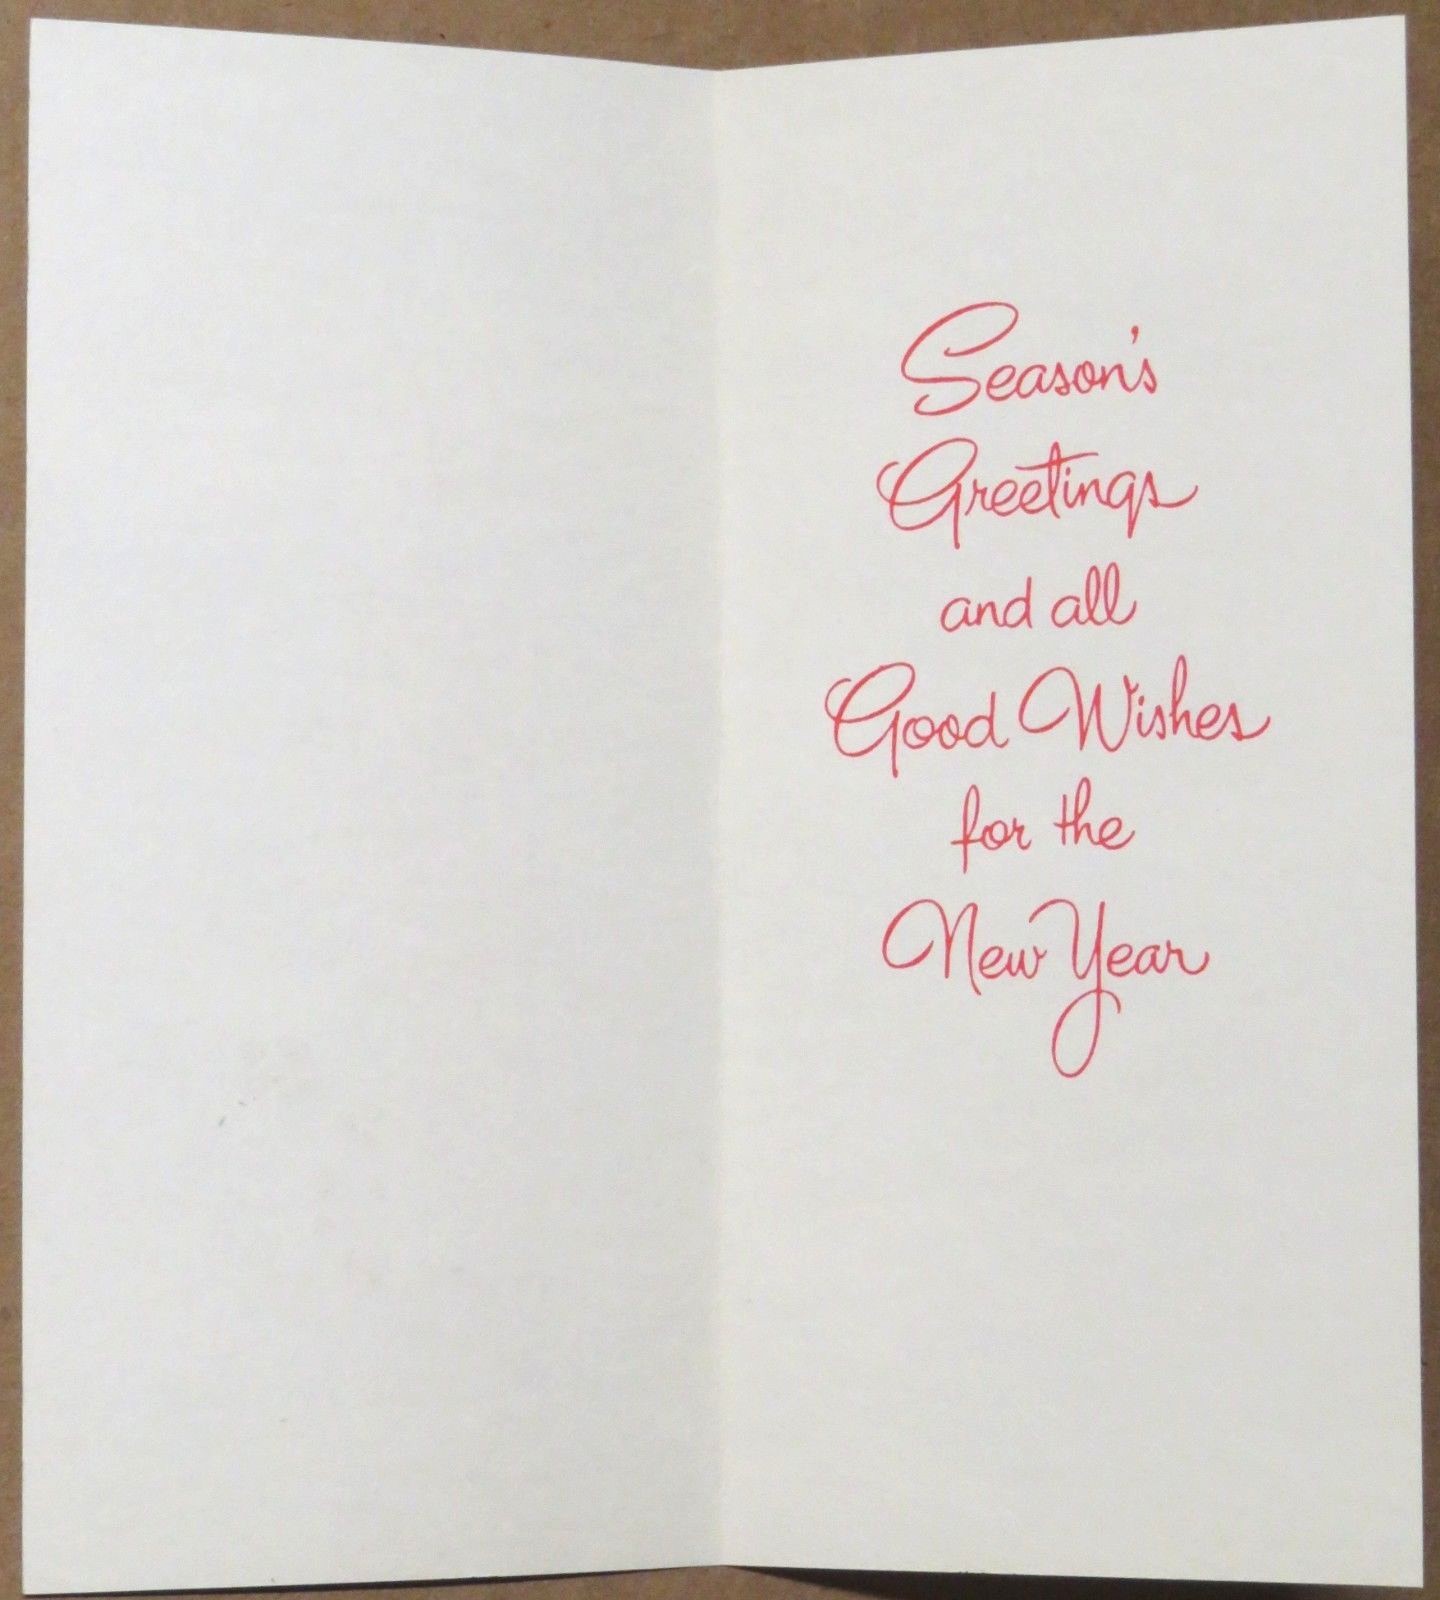 Season's
Greetings
and all
Good Wishes
for the
New Year